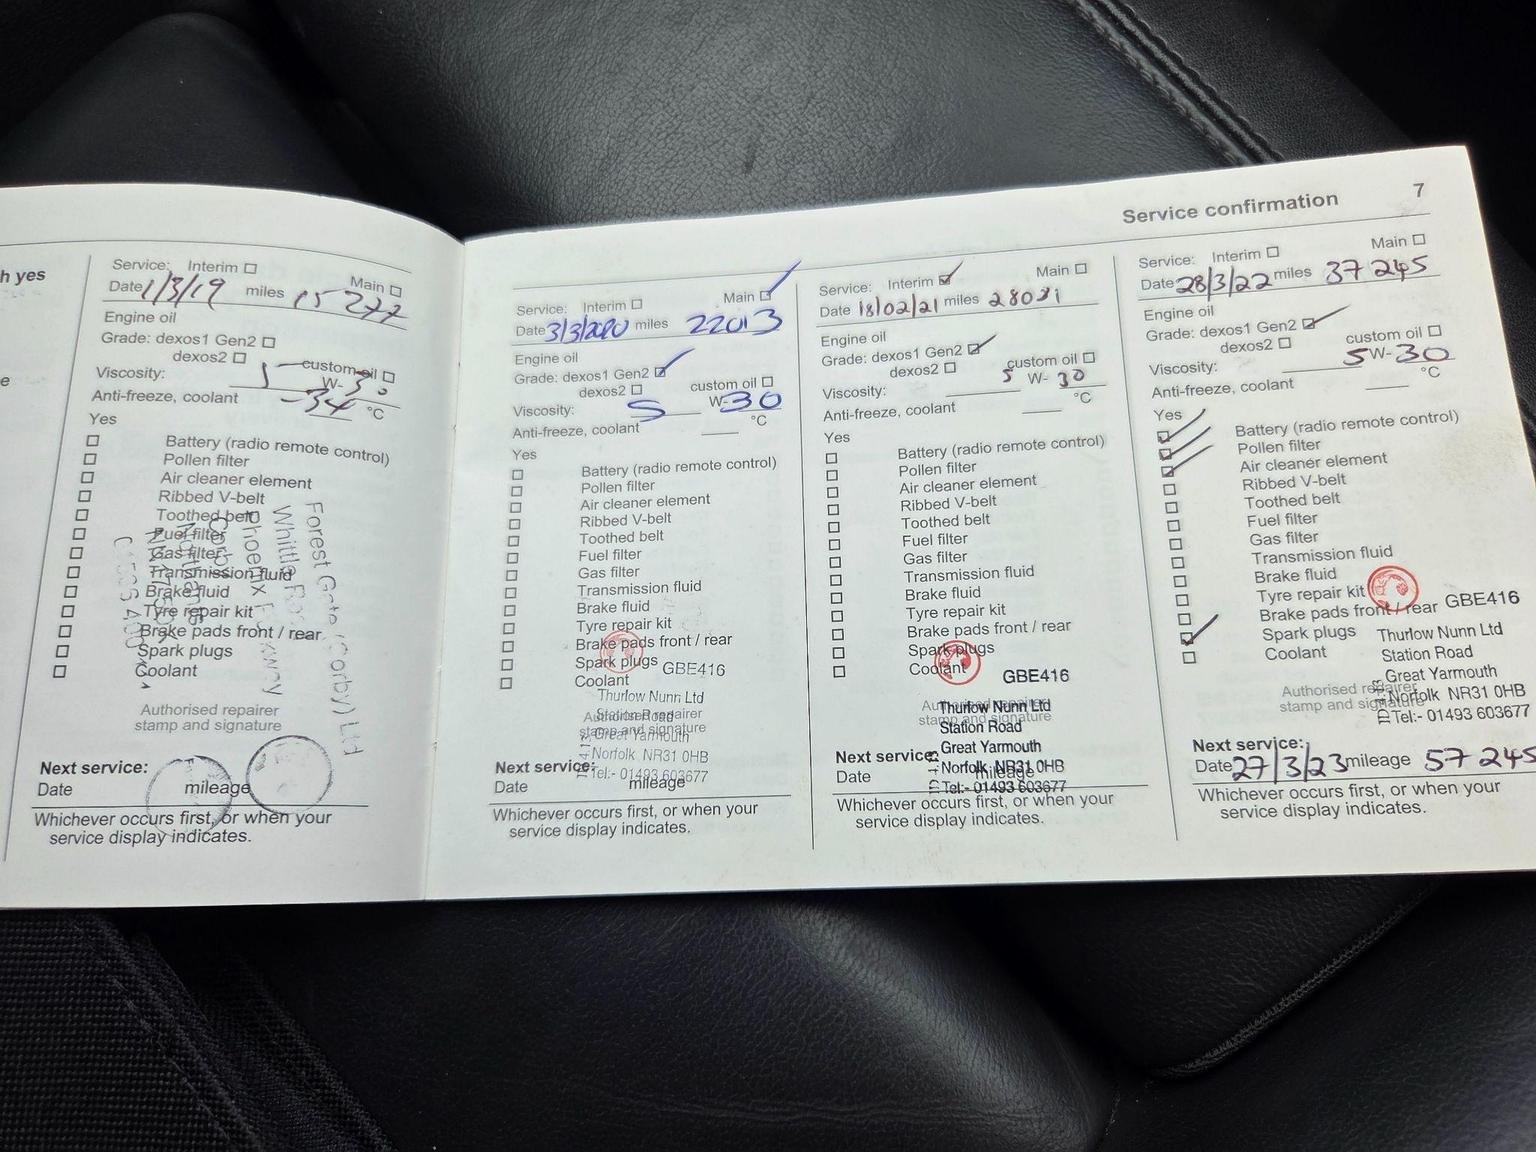 Service confirmation 7
h yes
e
Service: Interim Main
Date 1/3/19 miles 15277
Engine oil
Grade: dexos1 Gen2
dexos2
custom oil
Viscosity: W-30
Anti-freeze, coolant -34 °C
Yes
Battery (radio remote control)
Pollen filter
Air cleaner element
Ribbed V-belt
Toothed belt
Fuel filter
Gas filter
Transmission fluid
Brake fluid
Tyre repair kit
Brake pads front / rear
Spark plugs
Coolant
Forest Gate (Corby) Ltd
Authorised repairer
stamp and signature
Next service:
Date mileage
Whichever occurs first, or when your
service display indicates.
Service: Interim Main
Date 3/3/2020 miles 22013
Engine oil
Grade: dexos1 Gen2
dexos2 custom oil
Viscosity: 5 W-30
Anti-freeze, coolant °C
Yes
Battery (radio remote control)
Pollen filter
Air cleaner element
Ribbed V-belt
Toothed belt
Fuel filter
Gas filter
Transmission fluid
Brake fluid
Tyre repair kit
Brake pads front / rear
Spark plugs
Coolant
GBE416
Thurlow Nunn Ltd
Station Road
Great Yarmouth
Norfolk NR31 0HB
Tel:- 01493 603677
Authorised repairer
stamp and signature
Next service:
Date mileage
Whichever occurs first, or when your
service display indicates.
Service: Interim Main
Date 18/02/21 miles 28031
Engine oil
Grade: dexos1 Gen2
dexos2 custom oil
Viscosity: 5 W-30
Anti-freeze, coolant °C
Yes
Battery (radio remote control)
Pollen filter
Air cleaner element
Ribbed V-belt
Toothed belt
Fuel filter
Gas filter
Transmission fluid
Brake fluid
Tyre repair kit
Brake pads front / rear
Spark plugs
Coolant
GBE416
Thurlow Nunn Ltd
Station Road
Great Yarmouth
Norfolk NR31 0HB
Tel:- 01493 603677
Authorised repairer
stamp and signature
Next service:
Date mileage
Whichever occurs first, or when your
service display indicates.
Service: Interim Main
Date 28/3/22 miles 37245
Engine oil
Grade: dexos1 Gen2
dexos2 custom oil
Viscosity: 5 W-30
Anti-freeze, coolant °C
Yes
Battery (radio remote control)
Pollen filter
Air cleaner element
Ribbed V-belt
Toothed belt
Fuel filter
Gas filter
Transmission fluid
Brake fluid
Tyre repair kit
Brake pads front / rear
Spark plugs
Coolant
GBE416
Thurlow Nunn Ltd
Station Road
Great Yarmouth
Norfolk NR31 0HB
Tel:- 01493 603677
Authorised repairer
stamp and signature
Next service:
Date 27/3/23 mileage 57245
Whichever occurs first, or when your
service display indicates.